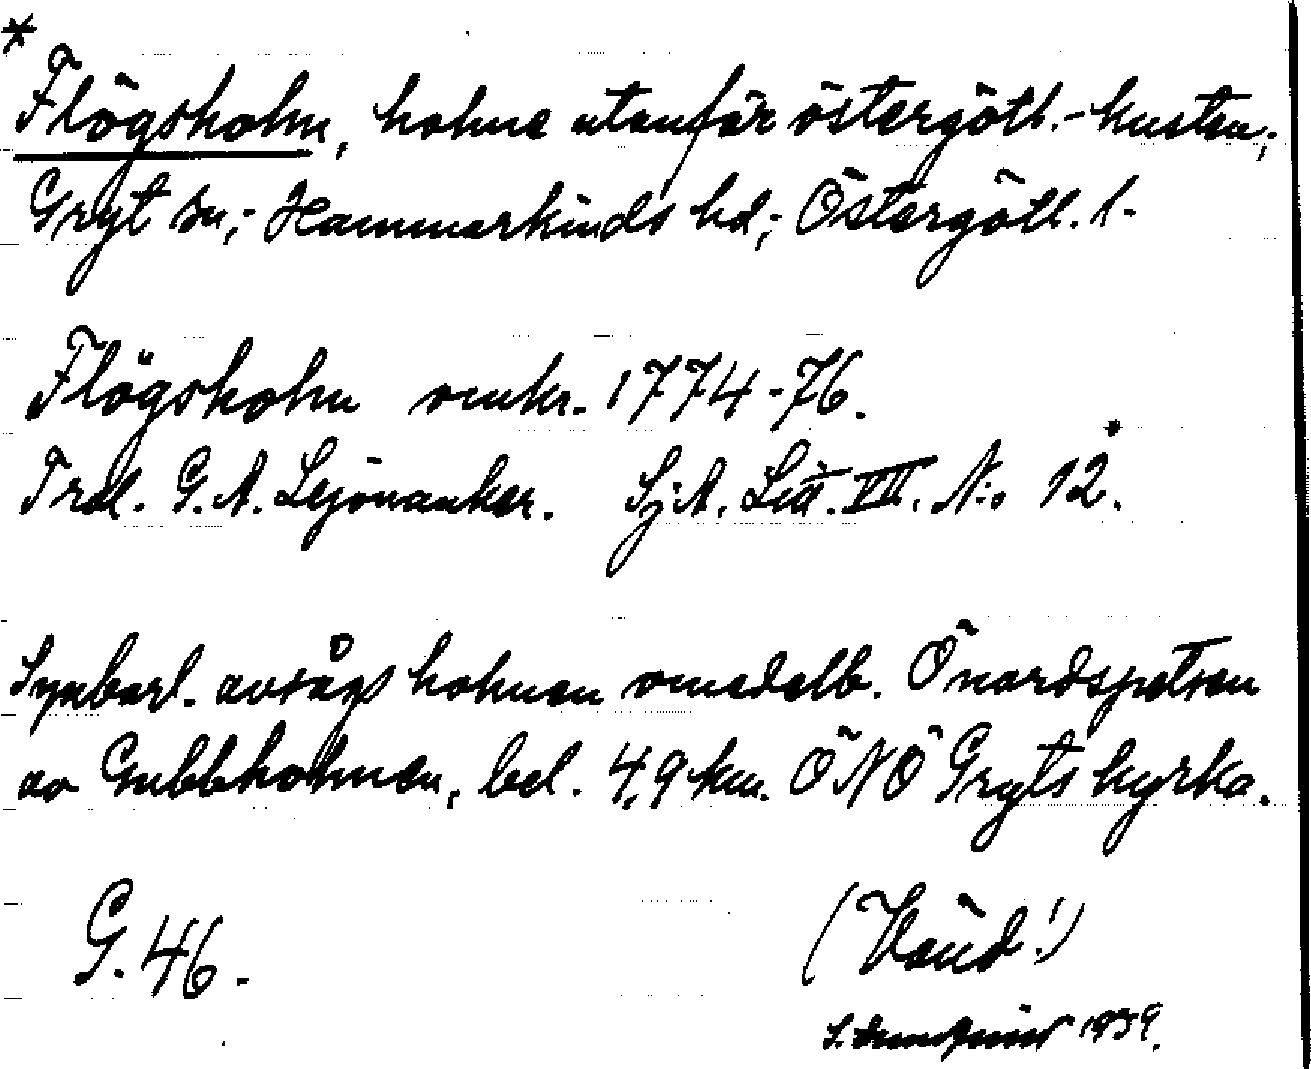 *
Flögsholm, holme utanför östergötl.-kusten;
Gryt sn; Hammarkinds hd; Östergötl. l.
Flögsholm omkr. 1774-76.
Trol. G.A. Lejonanker. SjA. Litt. VIII. N:o 12.
Synbarl. avsågs holmen omedelb. Ö nordspetsen
av Gubbholmen, bel. 4,9 km. ÖNÖ Gryts kyrka.
G. 46.
(Vänd!)
1939.